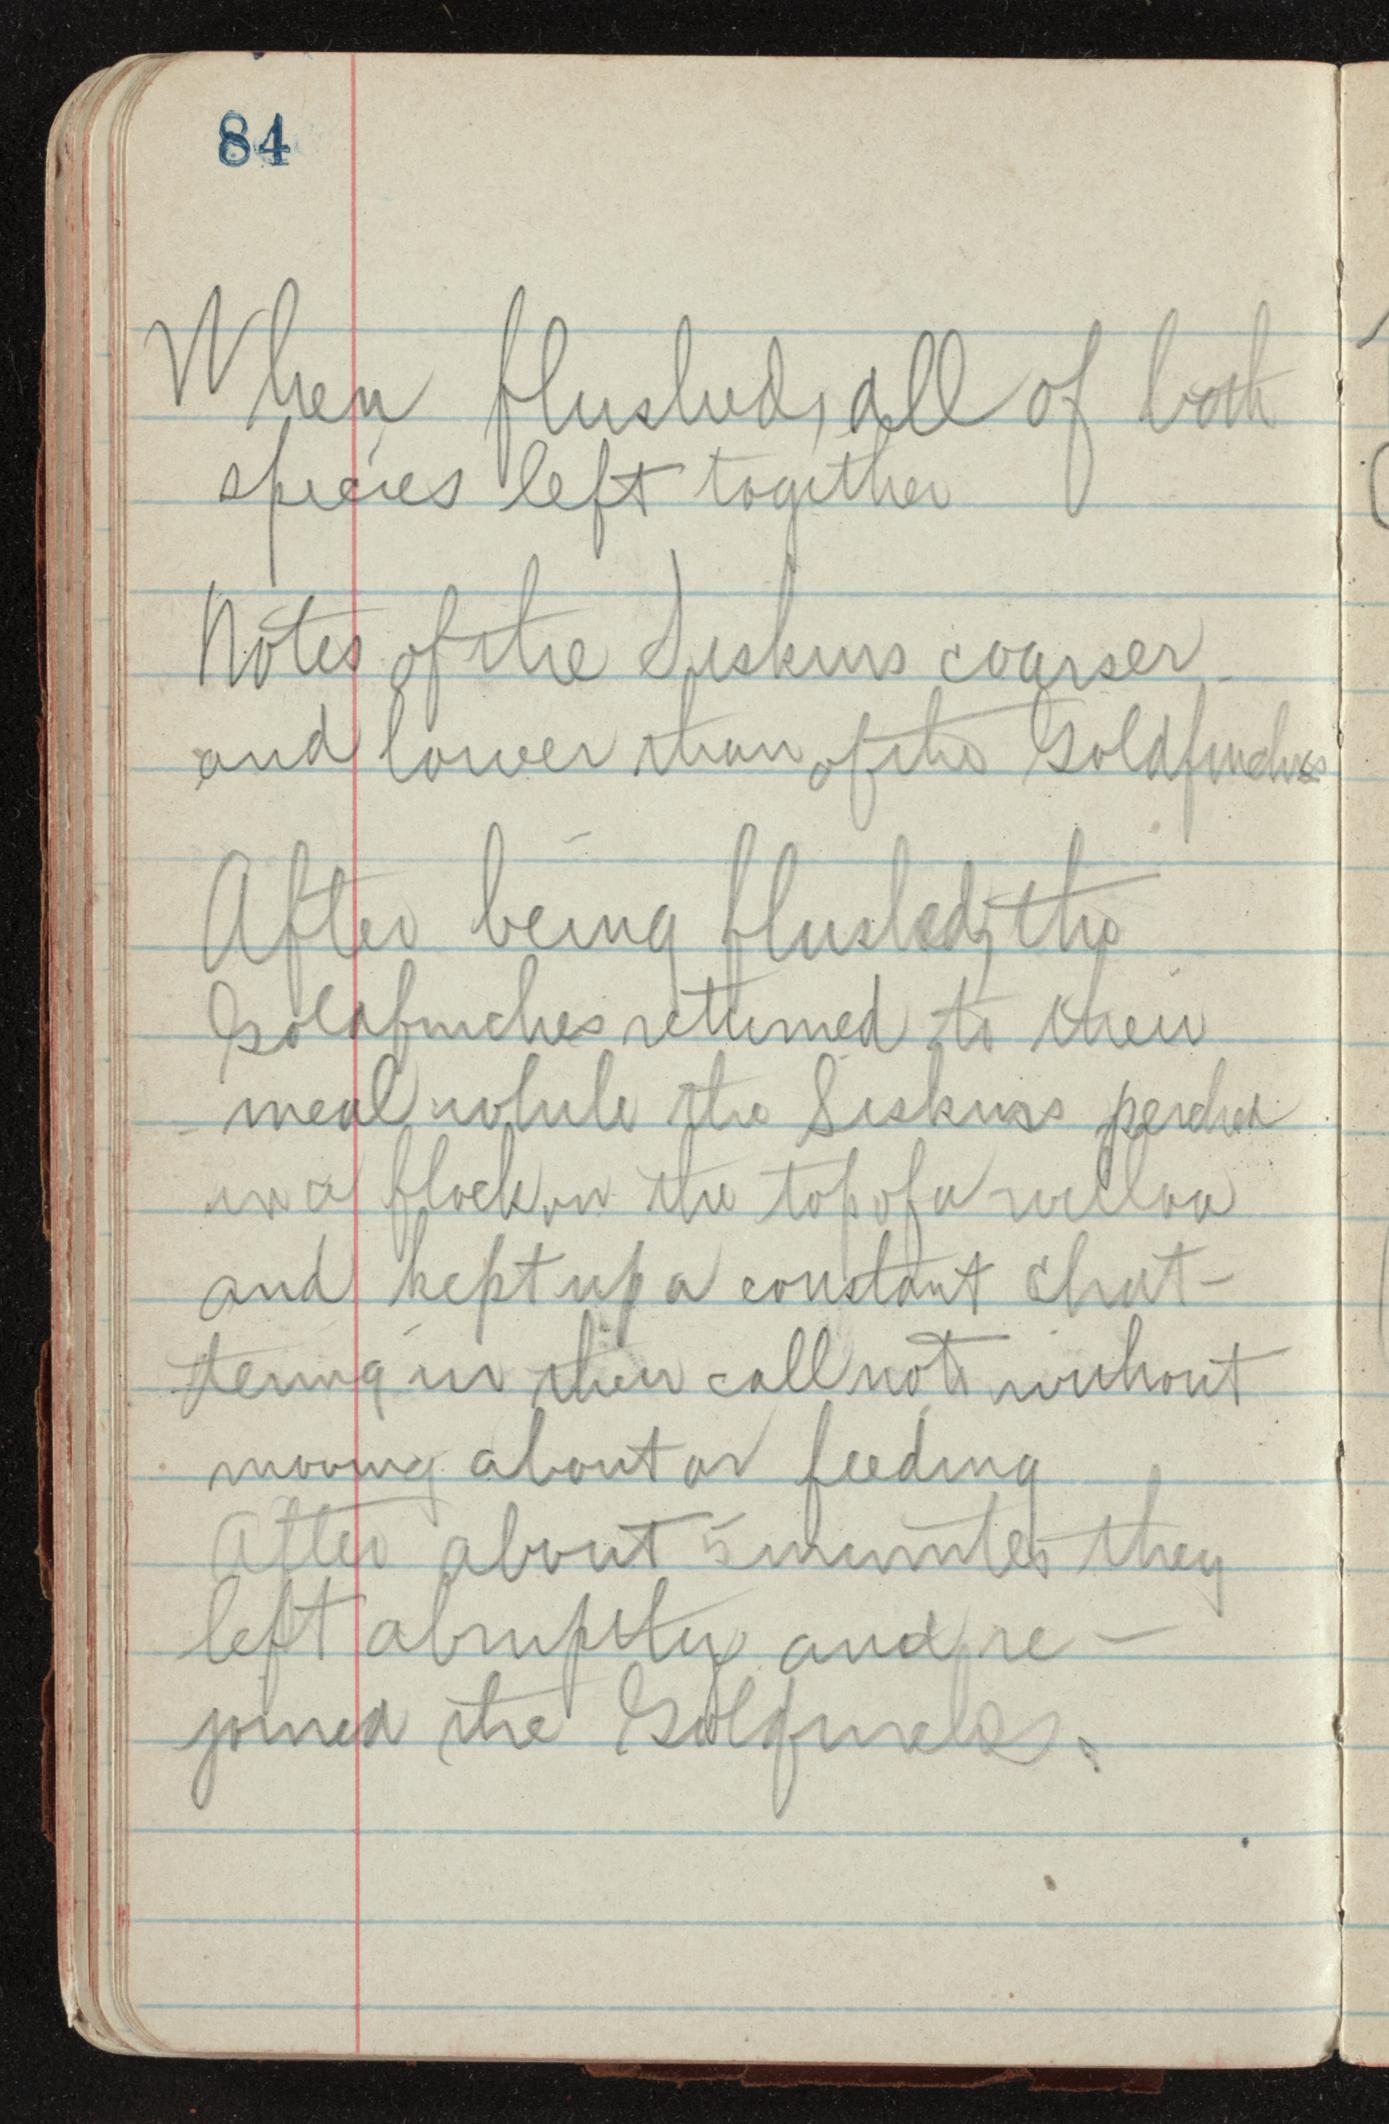 84
When flushed, all of both
species left together
Notes of the Siskins coarser
and lower than of the Goldfinches
After being flushed, the
Goldfinches returned to their
meal while the Siskins perched
in a flock on the top of a willow
and kept up a constant chat-
tering in their call note without
moving about or feeding
After about 5 minutes they
left abruptly and re-
joined the Goldfinches.